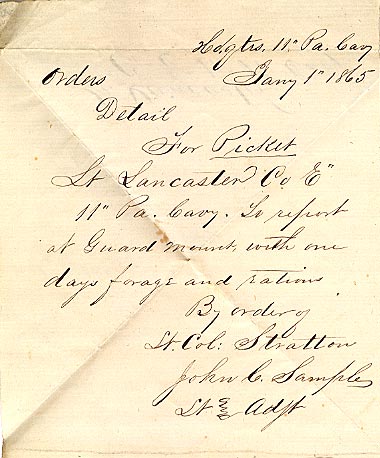 Hdqtrs. 11" Pa. Cavy
Orders Jany 1" 1865
Detail
For Picket
Lt Lancaster Co E"
11" Pa. Cavy. To report
at Guard mount, with one
days forage and rations
By order of
Lt. Col: Stratton
John C. Sample
Lt & Adjt